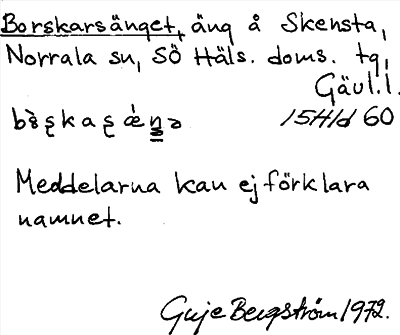 Borskarsänget, äng å Skensta,
Norrala sn, SÖ Häls. doms. tg,
Gävl. l.
15H1d 60
Meddelarna kan ej förklara
namnet.
Guje Bergström 1972.